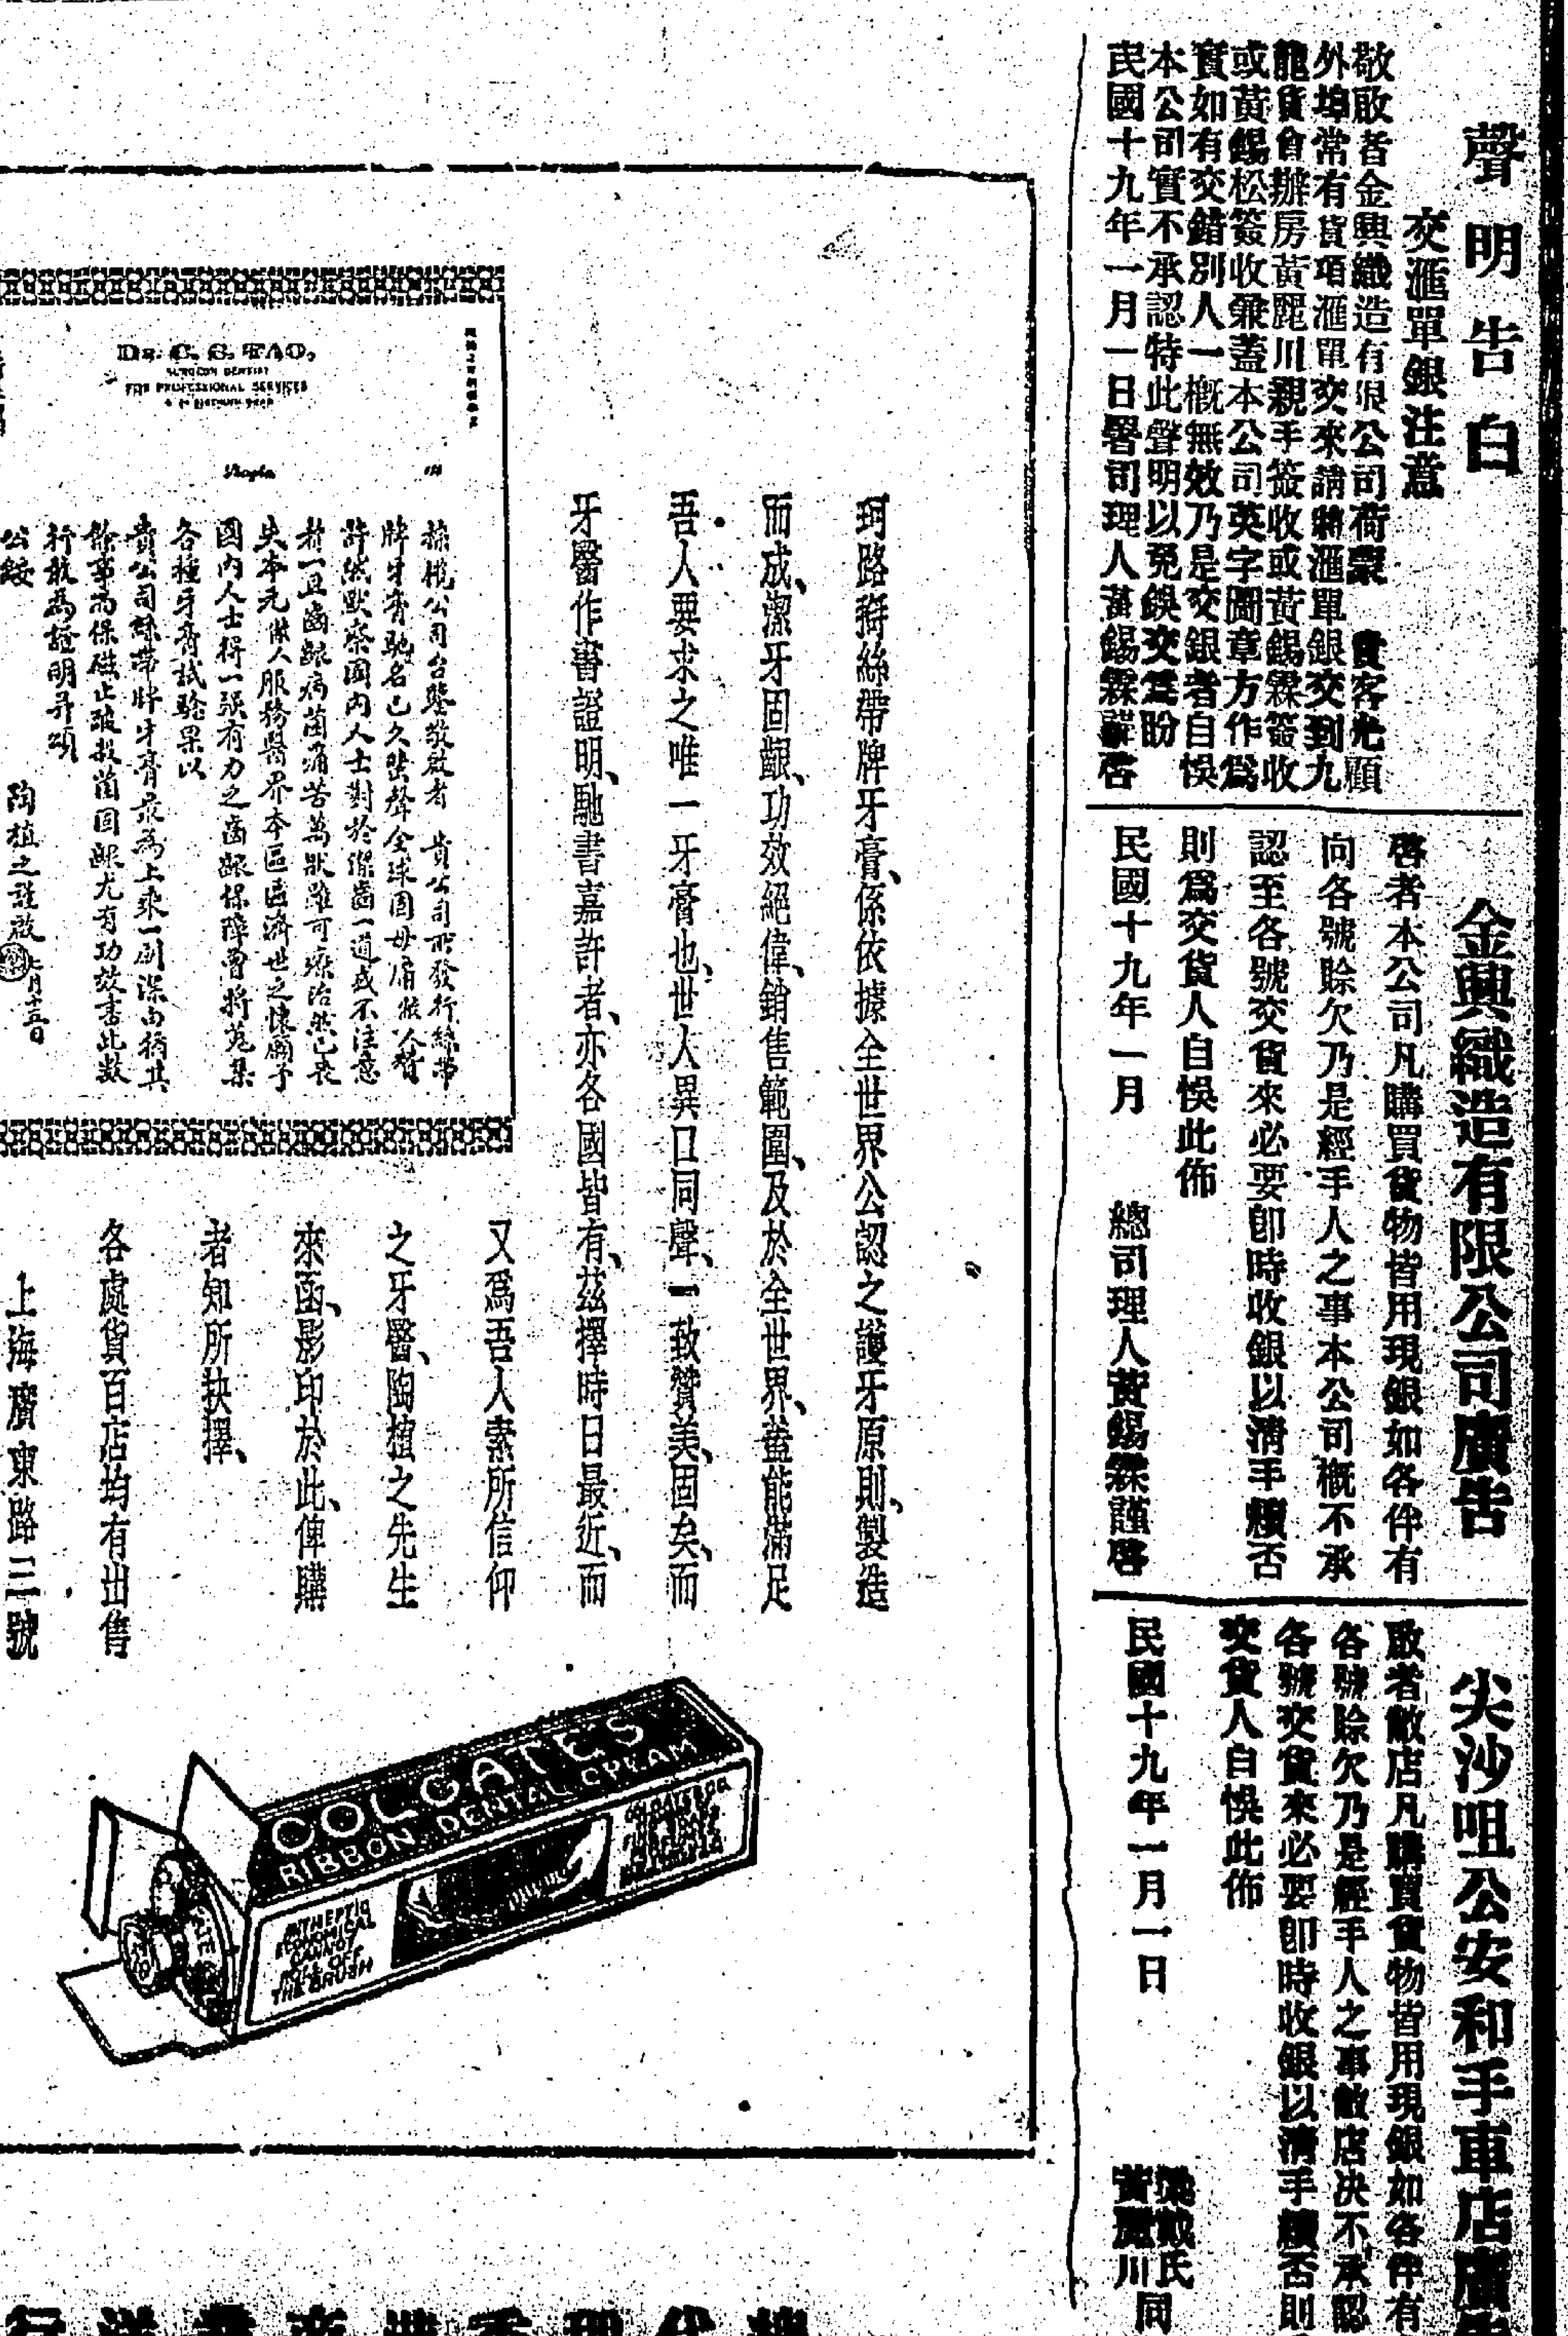 聲明告白
交滙單銀注意
敬啟者金興織造有限公司荷蒙 貴客光顧
外埠常有貨項滙單交來請將滙單銀交到九
龍貨倉辦房黃麗川親手簽收或黃錫霖簽收
或黃錫松簽收兼蓋本公司英字圖章方作爲
實如有交錯別人一概無效乃是交銀者自悞
本公司實不承認特此聲明以免悞交爲盼
民國十九年一月一日署司理人黃錫霖謹啓
金興織造有限公司廣告
啓者本公司凡購買貨物皆用現銀如各伴有
向各號賒欠乃是經手人之事本公司概不承
認至各號交貨來必要卽時收銀以淸手續否
則爲交貨人自悞此佈
民國十九年一月 總司理人黃錫霖謹啓
尖沙咀公安和手車店廣告
啟者敝店凡購買貨物皆用現銀如各伴有
各號賒欠乃是經手人之事敝店决不承認
各號交貨來必要卽時收銀以清手續否則
交貨人自悞此佈
民國十九年一月一日
梁戴氏
黃麗川
同
珂路搿絲帶牌牙膏、係依據全世界公認之護牙原則、製造
而成、潔牙固齦、功效絕偉、銷售範圍、及於全世界、蓋能滿足
吾人要求之唯一牙膏也、世人異口同聲、一致贊美、固矣、而
牙醫作書證明、馳書嘉許者、亦各國皆有、茲擇時日最近、而
又爲吾人素所信仰
之牙醫、陶植之先生
來函、影印於此、俾購
者知所抉擇、
各處貨百店均有出售
上海廣東路三號
DR. C. S. TAO,
SURGEON DENTIST
FOR PROFESSIONAL SERVICES
絲帶公司台鑒敬啟者 貴公司所發行絲帶
牌牙膏馳名已久蜚聲全球固毋庸僕人贊
許然默察國內人士對於潔齒一道或不注意
者一旦齒齦病菌痛苦萬狀雖可療治然已喪
失本元僕人服務醫界本區區濟世之懷願予
國內人士得一強有力之齒齦保障曾將蒐集
各種牙膏試驗果以
貴公司絲帶牌牙膏最爲上乘一刷深由柄其
餘事爲保磁止破殺菌固齦尤有功效書此數
行敢爲證明并頌
公綏
陶植之謹啟 七月十五日
COLGATE'S
RIBBON DENTAL CREAM
ANTISEPTIC
ECONOMICAL
CANNOT
ROLL OFF
THE BRUSH